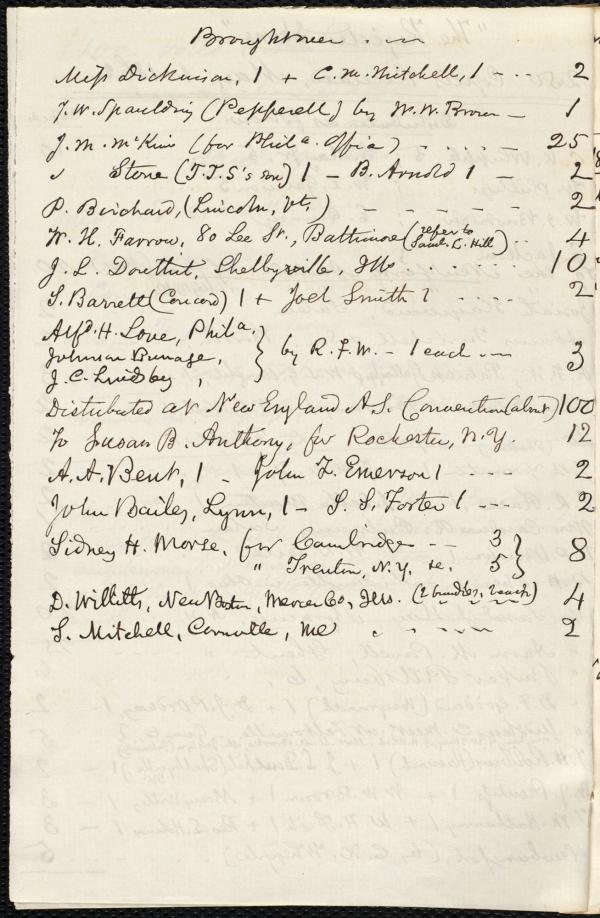 Brought over . —
Miss Dickinson, 1 + C. M. Mitchell, 1 - - · 2
J. W. Spaulding (Pepperell) by W. W. Brown — 1
J. M. McKim (for Phila. Office) - . . - . - 25
" Stone (J.T.S's son) 1 — B. Arnold 1 — 2
P. Birchard, (Lincoln, Vt.) — — — — — 2
W. H. Farrow, 80 Lee St., Baltimore (refer to Saml. L. Hill) . . 4
J. L. Douthit, Shelbyville, Ills . . . . . . 10
S. Barrett (Concord) 1 + Joel Smith 1 . . . . 2
Alfd. H. Love, Phila.,
Johnson
J. C. Lindsley, } by R.F.W. — 1 each . — 3
Distributed at New England A.S. Convention (about) 100
To Susan B. Anthony, for Rochester, N.Y. 12
A. A. Bent, 1 — John L. Emerson 1 - - - - 2
John Bailey, Lynn, 1 — S. S. Foster 1 - - - 2
Sidney H. Morse, for Cambridge - - 3
" Trenton, N.Y. &c. 5 } 8
D. Willetts, New Boston, Mercer Co., Ills. (2 bundles, 2 each) 4
S. Mitchell, Cornville, Me . - . - - - 2